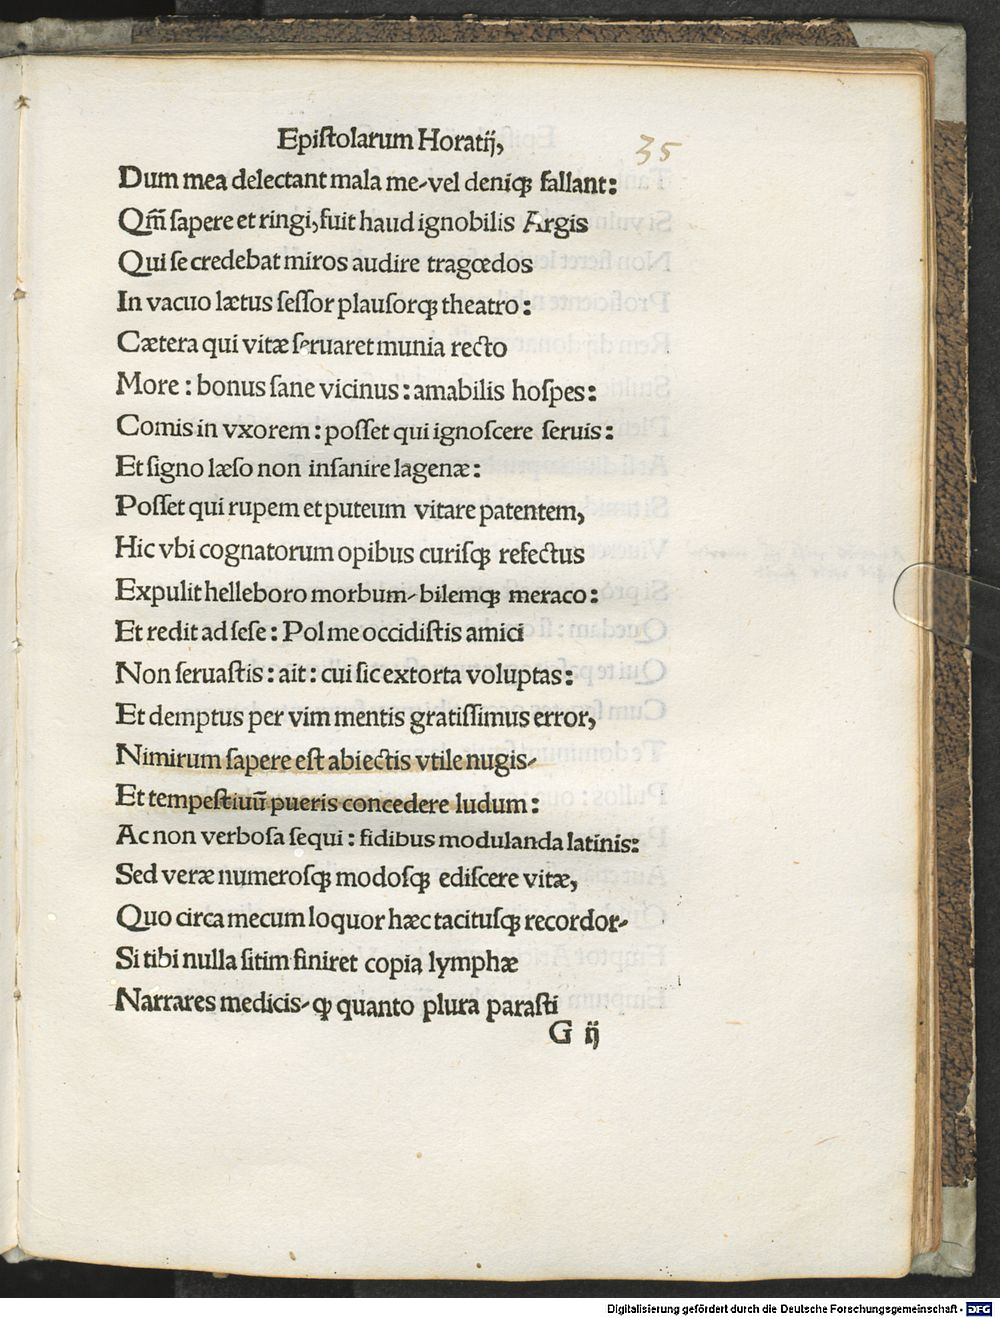 Epiſtolarum Horatij,
35
Dum mea delectant mala me-vel deniqꝫ fallant:
Qm̃ ſapere et ringi,fuit haud ignobilis Argis
Qui ſe credebat miros audire tragœdos
In vacuo lætus ſeſſor plauſorqꝫ theatro:
Cætera qui vitæ ſeruaret munia recto
More: bonus ſane vicinus: amabilis hoſpes:
Comis in vxorem: poſſet qui ignoſcere ſeruis:
Et ſigno læſo non inſanire lagenæ:
Poſſet qui rupem et puteum vitare patentem,
Hic vbi cognatorum opibus curiſqꝫ refectus
Expulit helleboro morbum-bilemqꝫ meraco:
Et redit ad ſeſe: Pol me occidiſtis amici
Non ſeruaſtis: ait: cui ſic extorta voluptas:
Et demptus per vim mentis gratiſſimus error,
Nimirum ſapere eſt abiectis vtile nugis-
Et tempeſtiuũ pueris concedere ludum:
Ac non verboſa ſequi: fidibus modulanda latinis:
Sed veræ numeroſqꝫ modoſqꝫ ediſcere vitæ,
Quo circa mecum loquor hæc tacituſqꝫ recordor-
Si tibi nulla ſitim finiret copia lymphæ
Narrares medicis-qꝫ quanto plura paraſti
G ij
Digitalisierung gefördert durch die Deutsche Forschungsgemeinschaft - DFG